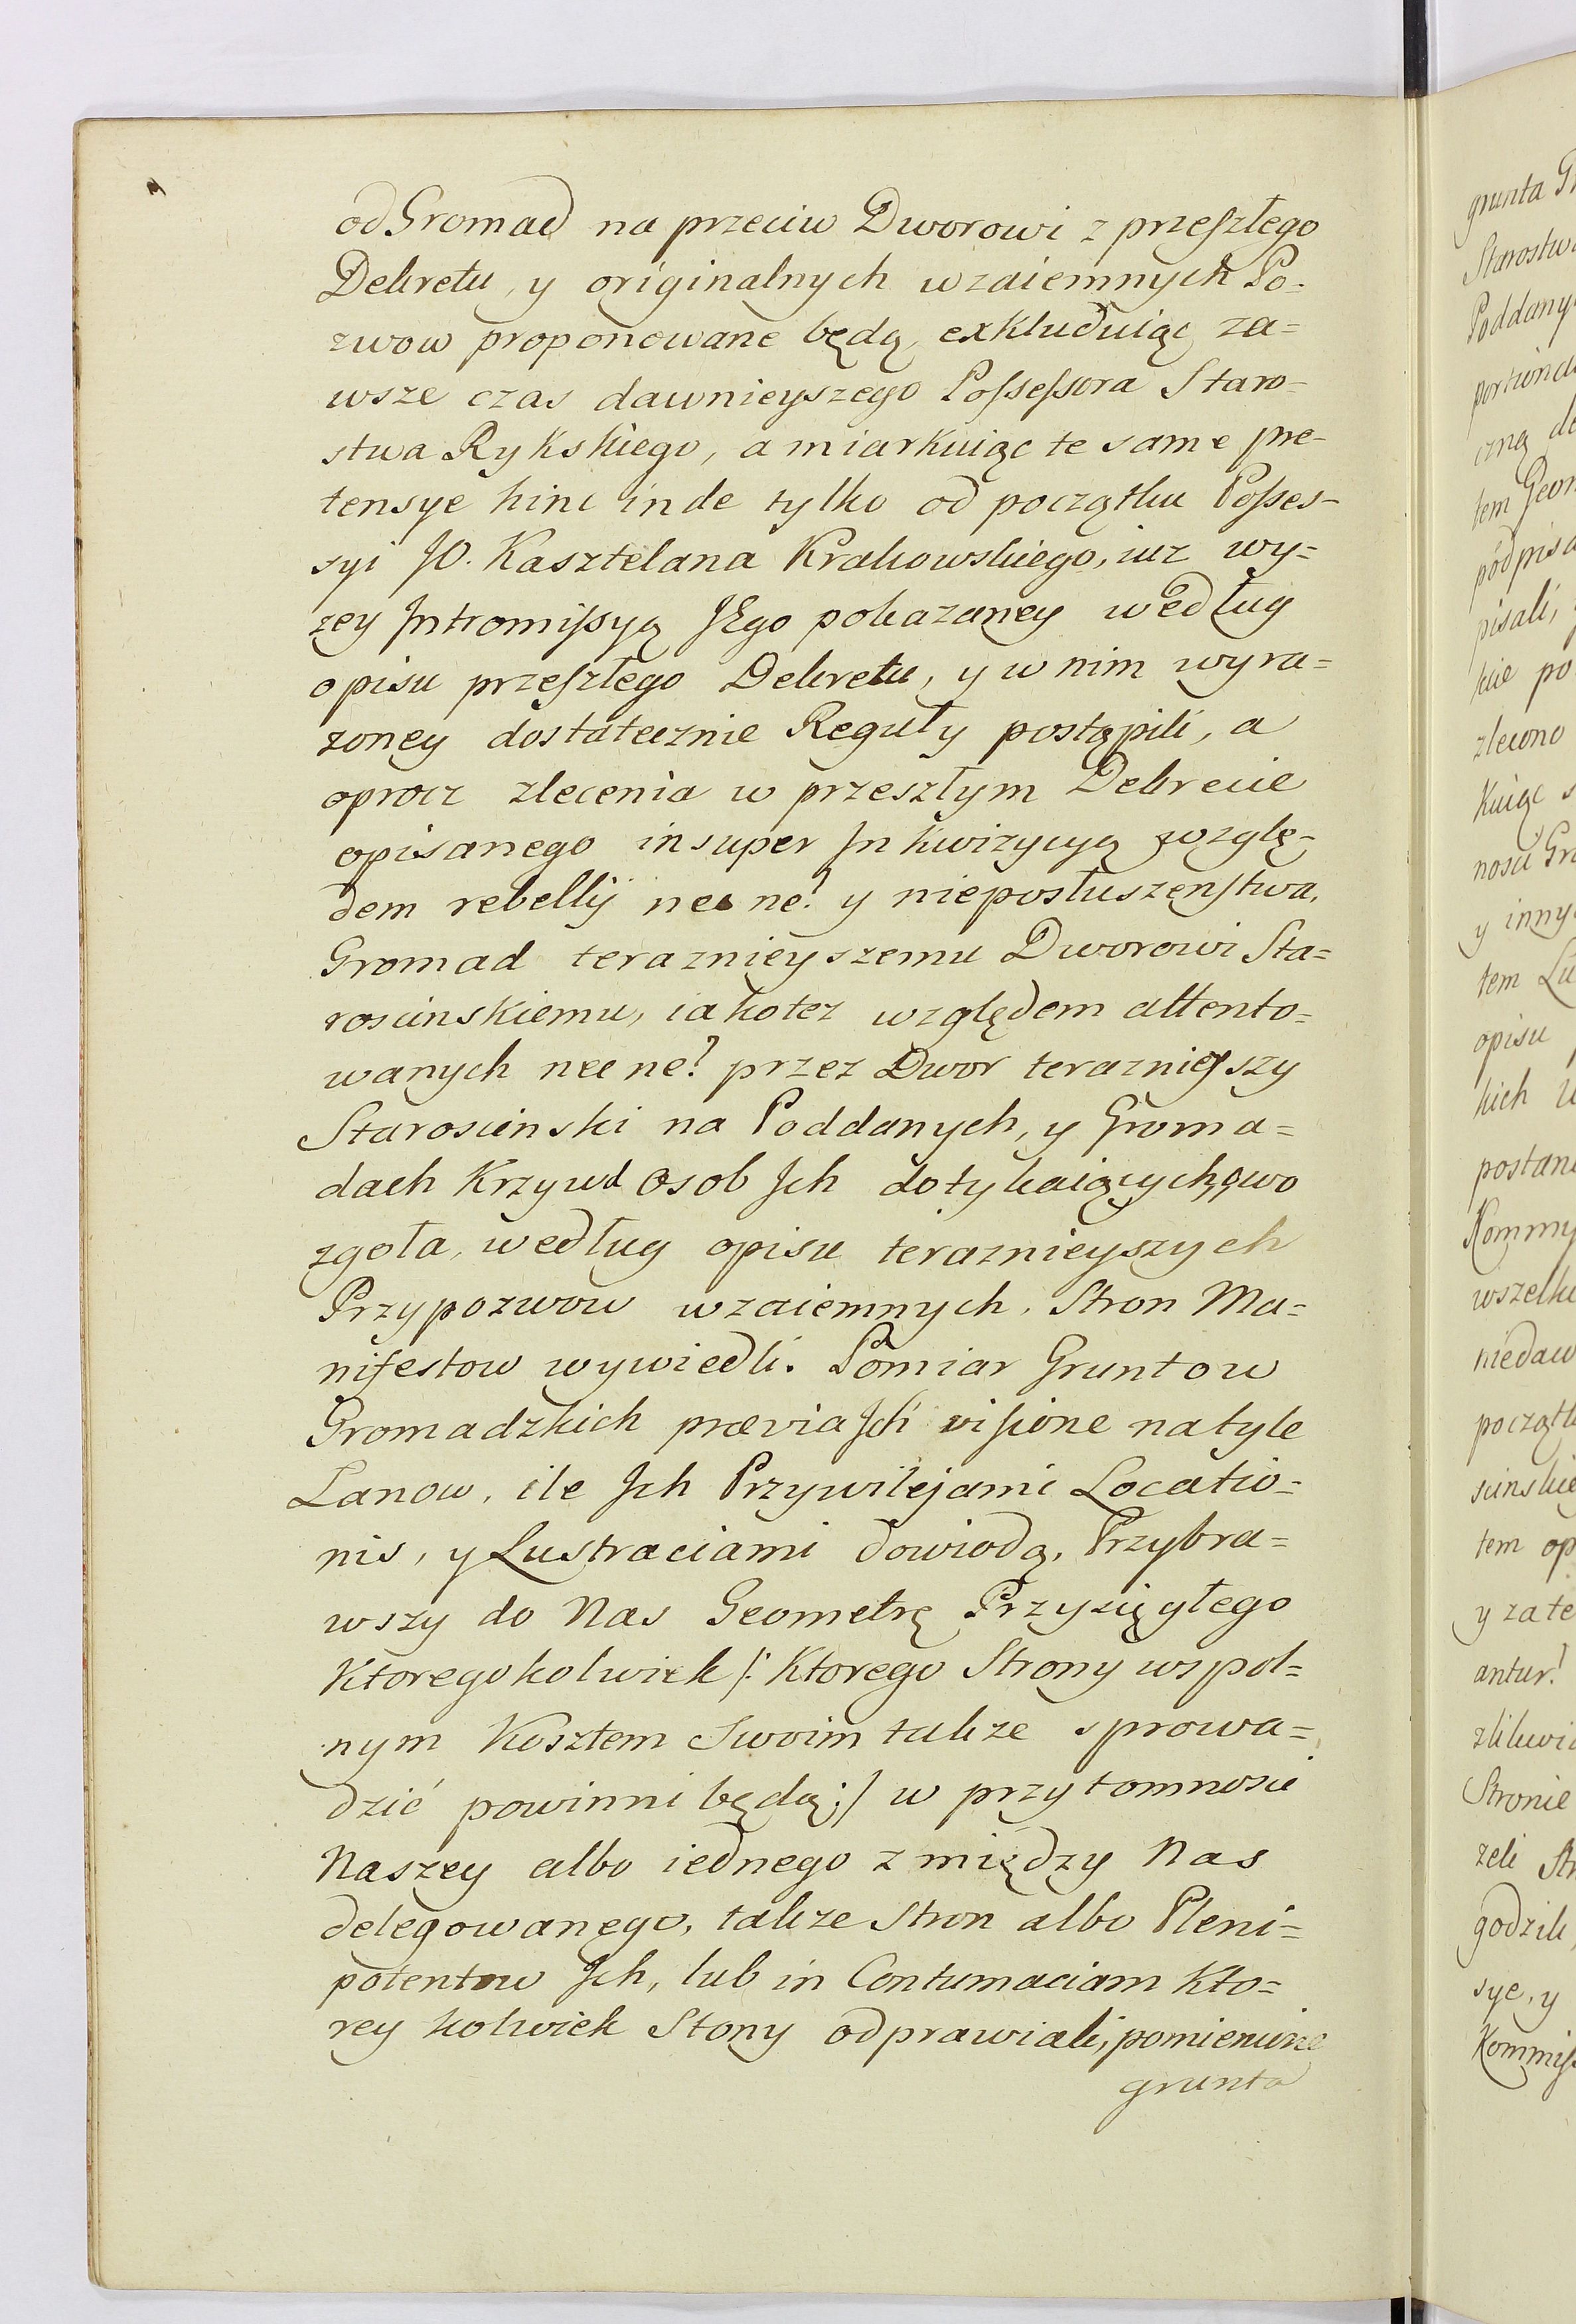 od Gromad na przeciw Dworowi z przeszłego
Dekretu, y originalnych wzaiemnych Po-
zwow proponowane będą, exkluduiąc za=
wsze czas dawnieyszego Possessora Staro-
stwa Rykskiego, a miarkuiąc te same pre-
tensye hinc inde tylko od początku Posses-
syi JO. Kasztelana Krakowskiego, iuz wy=
zey Intromissyą JEgo pokazaney według
opisu przeszłego Dekretu, y w nim wyra=
zoney dostatecznie Reguły postąpili, a
oprocz zlecenia w przeszłym Dekrecie
opisanego insuper Inkwizycyą wzglę-
dem rebellij nec ne? y nieposłuszenstwa,
Gromad teraznieyszemu Dworowi Sta=
roscinskiemu, iako tez względem attento=
wanych nec ne? przez Dwor teraznieyszy
Staroscinski na Poddanych, y Groma=
dach Krzywd Osob Ich dotykaiących, owo
zgoła, według opisu teraznieyszych
Przypozwow wzaiemnych, Stron Ma=
nifestow wywiedli. Pomiar Gruntow
Gromadzkich prævia Ich visione na tyle
Lanow, ile Ich Przywilejami Locatio=
nis, y Lustraciami dowiodą, Przybra=
wszy do Nas Geometrę Przysięgłego
Ktoregokolwiek /: Ktorego Strony wspol=
nym Kosztem Swoim takze sprowa=
dzić powinni będą :/ w przytomnosci
Naszey albo iednego z między Nas
delegowanego, takze Stron albo Pleni=
potentow Ich, lub in Contumaciam Kto=
rey kolwiek Stony odprawiali, pomienione
grunta

grunta
Starostwa
Poddany
czną
tem
podpisa
pisali,
kie po
zlecono
Kuiąc
nosci
y inny
tem
opisu
kich
postan
Kommy
wszelk
niedaw
początk
tem op
y za te
antur?
Stronie
zeli
godzili,
sye, y
Kommiss